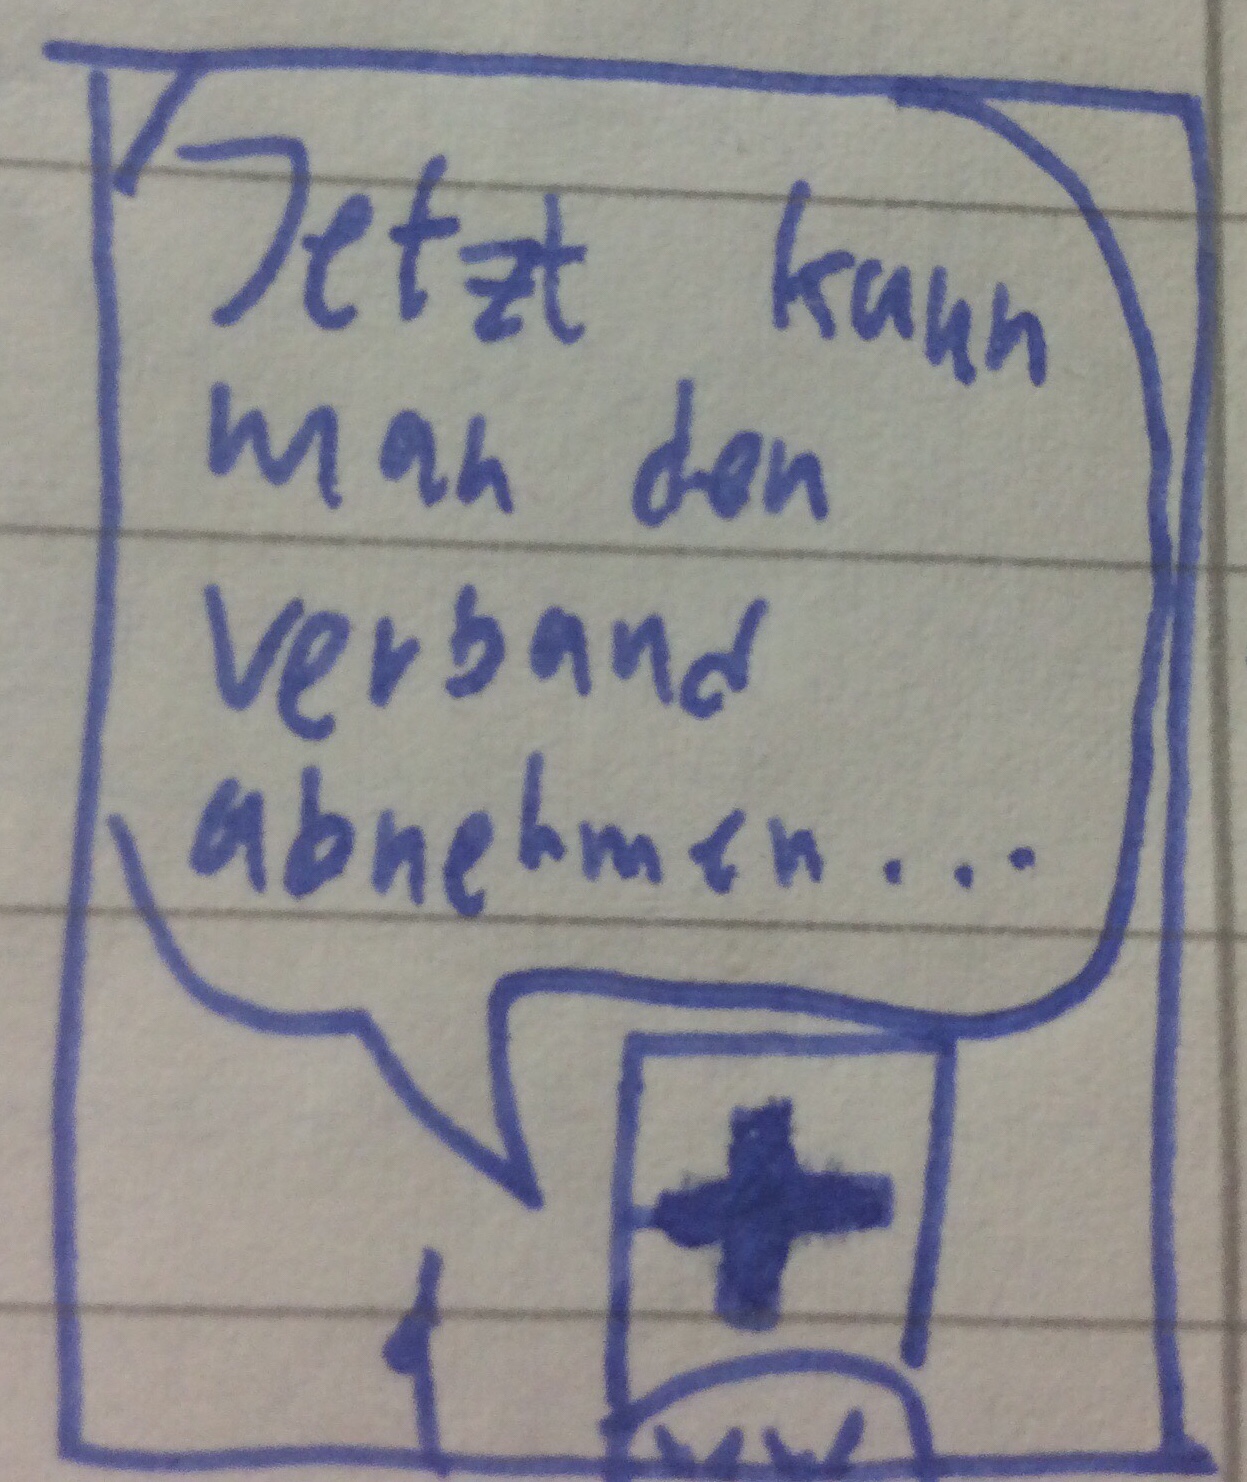 Jetzt kann
man den
verband
abnehmen...